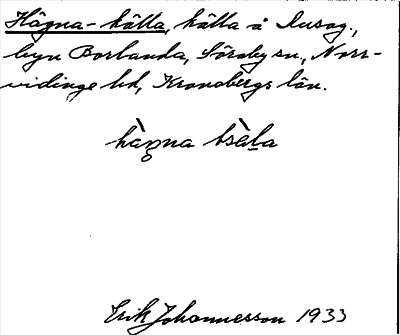 Hägna-källa, källa å Dusag.,
byn Borlanda, Söraby sn., Norr-
vidinge hd, Kronobergs län.
hàgna tsèla
Erik Johannesson 1933